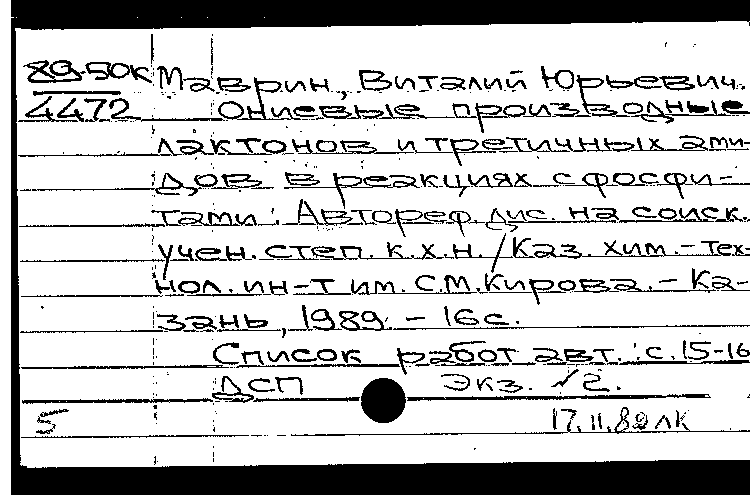 89-50к Маврин, Виталий Юрьевич.
4472 Ониевые производные
лактонов и третичных ами-
дов в реакциях с фосфи-
тами: Автореф. дис. на соиск.
учен. степ. к.х.н. / Каз. хим.-тех-
нол. ин-т им. С.М.Кирова. - Ка-
зань, 1989. - 16 с.
Список работ авт.: с. 15-16
ДСП Экз. √2.
5 17.11.89 лк